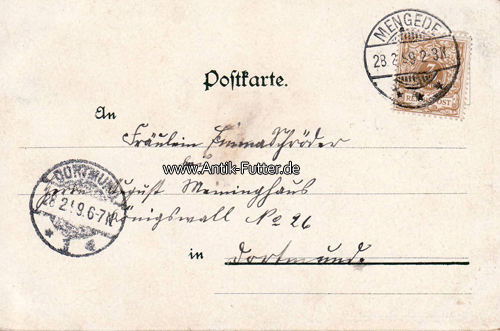 MENGEDE
28.2.99.2-3N.
REICHSPOST
Postkarte.
An
Fräulein Emma Schröder
www.Antik-Futter.de
DORTMUND
28.2.99.6-7N.
Herrn August Meininghaus
Königswall No 26
in Dortmund.